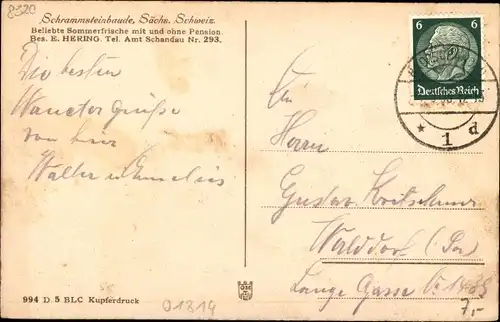 8320
Schrammsteinbaude, Sächs. Schweiz.
Beliebte Sommerfrische mit und ohne Pension.
Bes. E. HERING. Tel. Amt Schandau Nr. 293.
6 6
Deutsches Reich
* 1 d
Die besten
Wandergrüße
von hier
Walter u.
An
Herrn
Gustav
Walddorf (Sa)
Lange Gasse
7,-
994 D 5 BLC Kupferdruck
01814